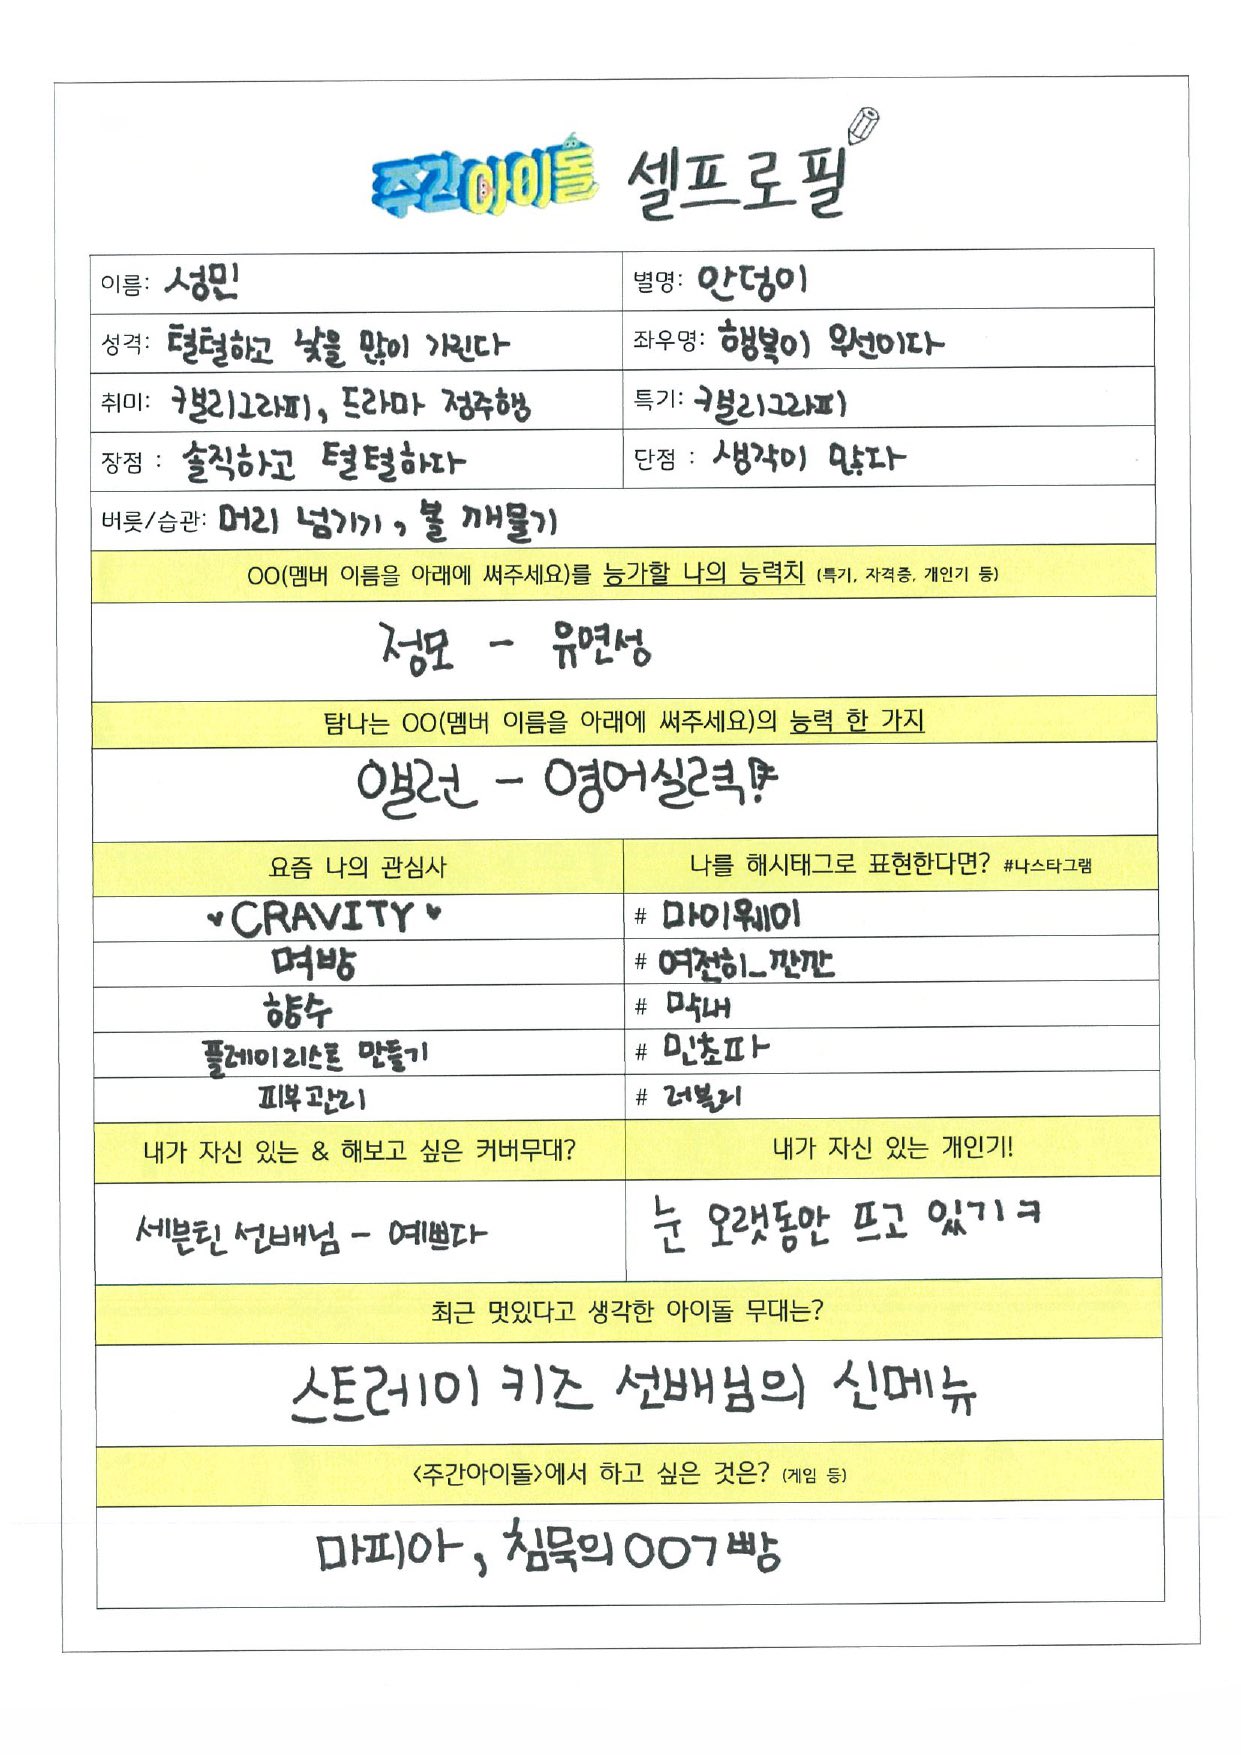 주간아이돌 셀프로필
이름: 성민 별명: 안덩이
성격: 털털하고 낯을 많이 가린다 좌우명: 행복이 우선이다
취미: 캘리그라피, 드라마 정주행 특기: 캘리그라피
장점 : 솔직하고 털털하다 단점 : 생각이 많다
버릇/습관: 머리 넘기기, 볼 깨물기
OO(멤버 이름을 아래에 써주세요)를 능가할 나의 능력치 (특기, 자격증, 개인기 등)
정모 - 유연성
탐나는 OO(멤버 이름을 아래에 써주세요)의 능력 한 가지
앨런 - 영어실력!
요즘 나의 관심사 나를 해시태그로 표현한다면? #나스타그램
♥CRAVITY♥ # 마이웨이
먹방 # 여전히_짠짠
향수 # 막내
플레이리스트 만들기 # 민초파
피부관리 # 러블리
내가 자신 있는 & 해보고 싶은 커버무대? 내가 자신 있는 개인기!
세븐틴 선배님 - 예쁘다 눈 오랫동안 뜨고 있기ㅋ
최근 멋있다고 생각한 아이돌 무대는?
스트레이 키즈 선배님의 신메뉴
<주간아이돌>에서 하고 싶은 것은? (게임 등)
마피아, 침묵의 007빵